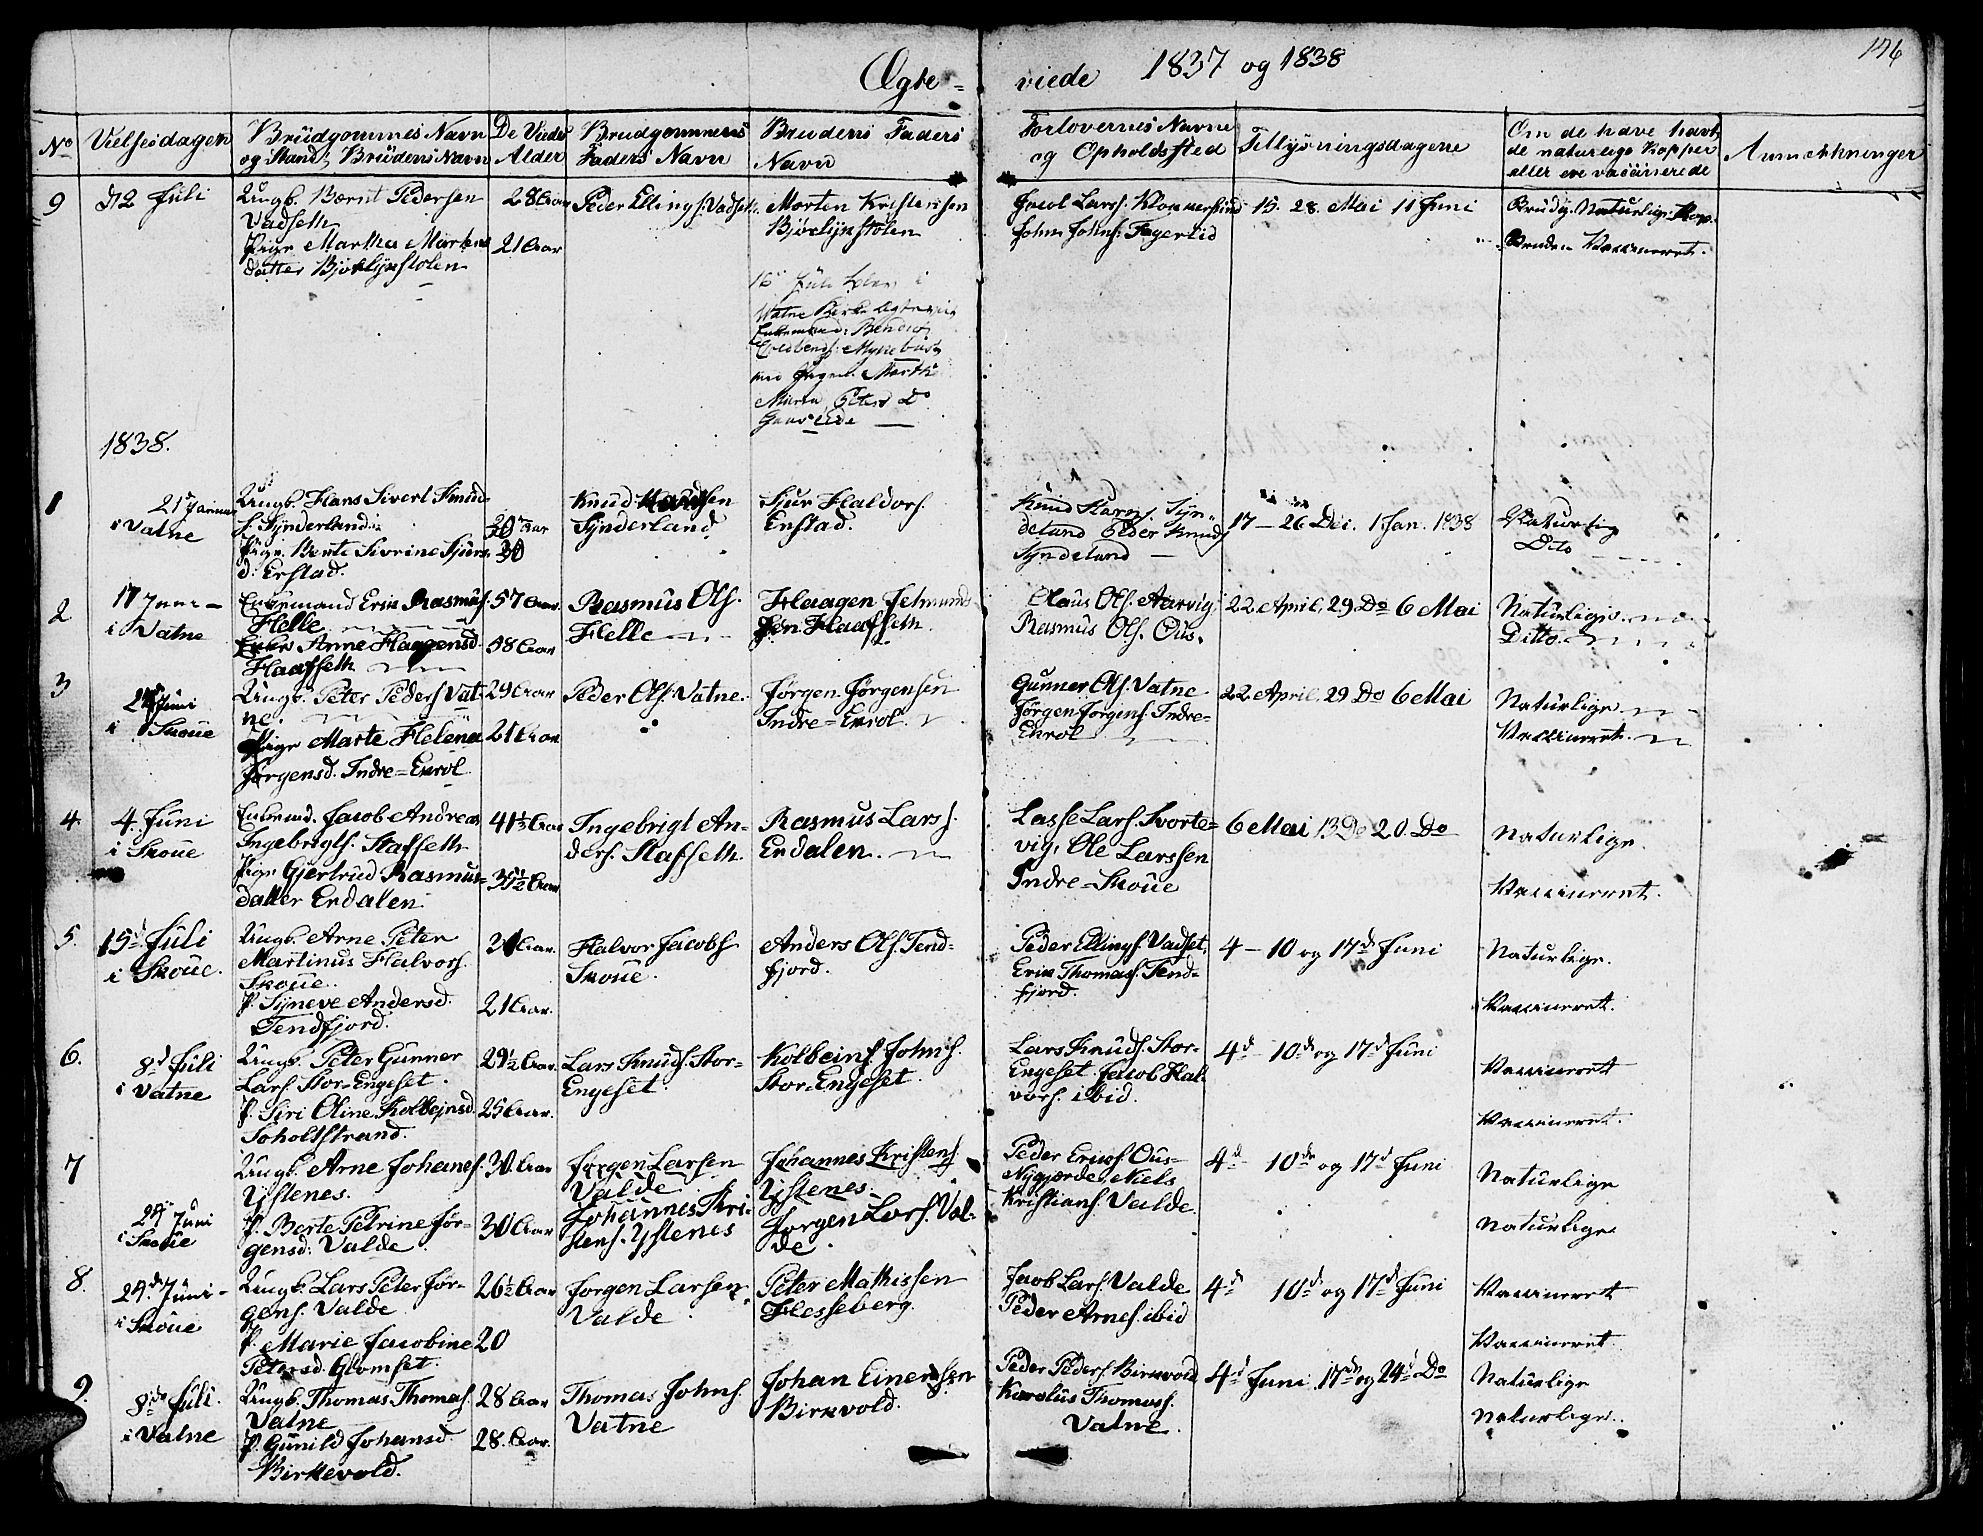 176
Ægte= viede 1837 og 1838
No Vielsesdagen Brüdgommes Navn og Stand, Brüdens Navn De Viedes Alder Brudgommens Faders Navn Brudens Faders Navn Forlovernes Navne og Opholdsted Tillysningsdagene Om de have havt de naturlige Kopper eller ere vacsinerede Anmerkninger
9 d12 Juli
Ungk. Bernt Pedersen
Vadseth
Pige Martha Martens
datter Bjørlijkstolen
28 Aar
21 Aar
Peder Ellings. Vadset
Morten Kristensen
Bjørlijkstolen
Jacol Lars. Klommerlind
John Johns. Fagerlid
15. 28. Mai 11 Juni
Brudg. Naturlige Kop.
Bruden Vaccineret.
16 Juli blev i
Vatne Kirke Ægteviet
Enkemand: Bendict
Myklebust
med Pigen Marth
Peters Do
1838.
1
21 Januar
i Vatne
Ungk. Hans Sivert Knud
s. Sÿnderland
Pige. Berte Sivrine Sjurs
d: Erstad.
30 Aar
30
Knud Knudsen
Sÿnderland
Sjur Haldors.
Erstad.
Knud Kars. Sÿn-
deland Peder Knuds
Sÿndeland
17 — 26 Dec. 1 Jan. 1838
Naturlig
Dito
2
17 Juni
i Vatne
Enkemand Erik Rasmus.
Helle
Enke Anne Haagensd.
Haafseth
57 Aar.
58 Aar
Rasmus Ols.
Helle
Haagen Jetmund
sen Haafseth.
Claus Ols. Aarvig
Rasmus Ols. Ous.
22. April. 29. Do 6 Mai
Naturlige.
Ditto.
3
24 Juni
i Skoue
Ungk. Peter Peders Vat-
ne.
Pige Marte Helena
Jørgensd. Indre=Ekrol
29 Aar
21 Aar
Peder Ols. Vatne.
Jørgen Jørgensen
Indre=Ekrol.
Gunner Ols. Vatne
Jørgen Jørgens. Indre=
Ekrol
22. April, 29 Do 6 Mai
Naturlige.
Vaccineret.
4.
4. Juni
i Skoue
Enkemd. Jacob Andreas
Ingebrigts. Stafseth
Pige Gjertrud Rasmus=
datter Erdalen
41½ Aar
35½ Aar
Ingebrigt An-
ders. Stafseth
Rasmus Lars.
Erdalen.
Lasse Lars. Svorte=
vig, Ole Larssen
Indre=Skoue
6 Mai 13 Do 20. Do
Naturlige.
Vaccineret.
5.
15d Juli
i Skoue.
Ungk. Arne Peter
Martinus Halvors.
Skoue.
P. Sÿneve Andersd.
Tendfjord.
31 Aar.
21 Aar.
Halvor Jacobs.
Skoue.
Anders Ols. Tend=
fjord.
Peder Ellings. Vadset,
Erik Thomas. Tend=
fjord.
4 — 10 og 17d Juni
Naturlige.
Vaccineret.
6.
8d Juli
i Vatne
Ungk. Peter Gunner
Lars. Stor=Engeset.
P. Siri Oline Kolbejnsd.
Soholtstrand.
29½ Aar.
25 Aar.
Lars Knuds. Stor=
Engeset.
Kolbeins. Johns.
Stor=Engeset.
Lars Knuds. Stor-
Engeset. Jacob Hal-
vors. ibid.
4d 10de og 17d Juni
Vaccineret
Vaccineret.
7
24 Juni
i Skoue
Ungk. Arne Johans.
Ÿstenes.
P. Berte Petrine Jør-
gensd: Valde
30 Aar
30 Aar
Jørgen Larsen
Valde
Johannes Kri-
stens. Ystenes
Johannes Kristens
Ystenes.
Jørgen Lars. Val-
de.
Peder Eriks. Ous-
Nÿgjærde, Niels
Kristians. Valde.
4d 10de og 17d Juni
Naturlige
Naturlige
8.
24de Juni
i Skoue
Ungk. Lars Peter Jør-
gens. Valde
P. Marie Jacobine
Petersd. Glomset.
26½ Aar
20
Jørgen Larsen
Valde
Peter Mathissen
Flesseberg
Jacob Lars. Valde
Peder Arnes. ibid
4d 10d og 17d Juni
Vaccineret
Vaccineret.
9.
8de Juli.
i Vatne
Ungk. Thomas Thomas.
Vatne
P. Gunild Johansd.
Birkevold.
28 Aar
28. Aar.
Thomas Johns.
Vatne
Johan Einersen
Birkvold.
Peder Peders. Birkevold
Karolus Thomas.
Vatne.
4d Juni 17de og 24d Do
Naturlige
Naturlige.